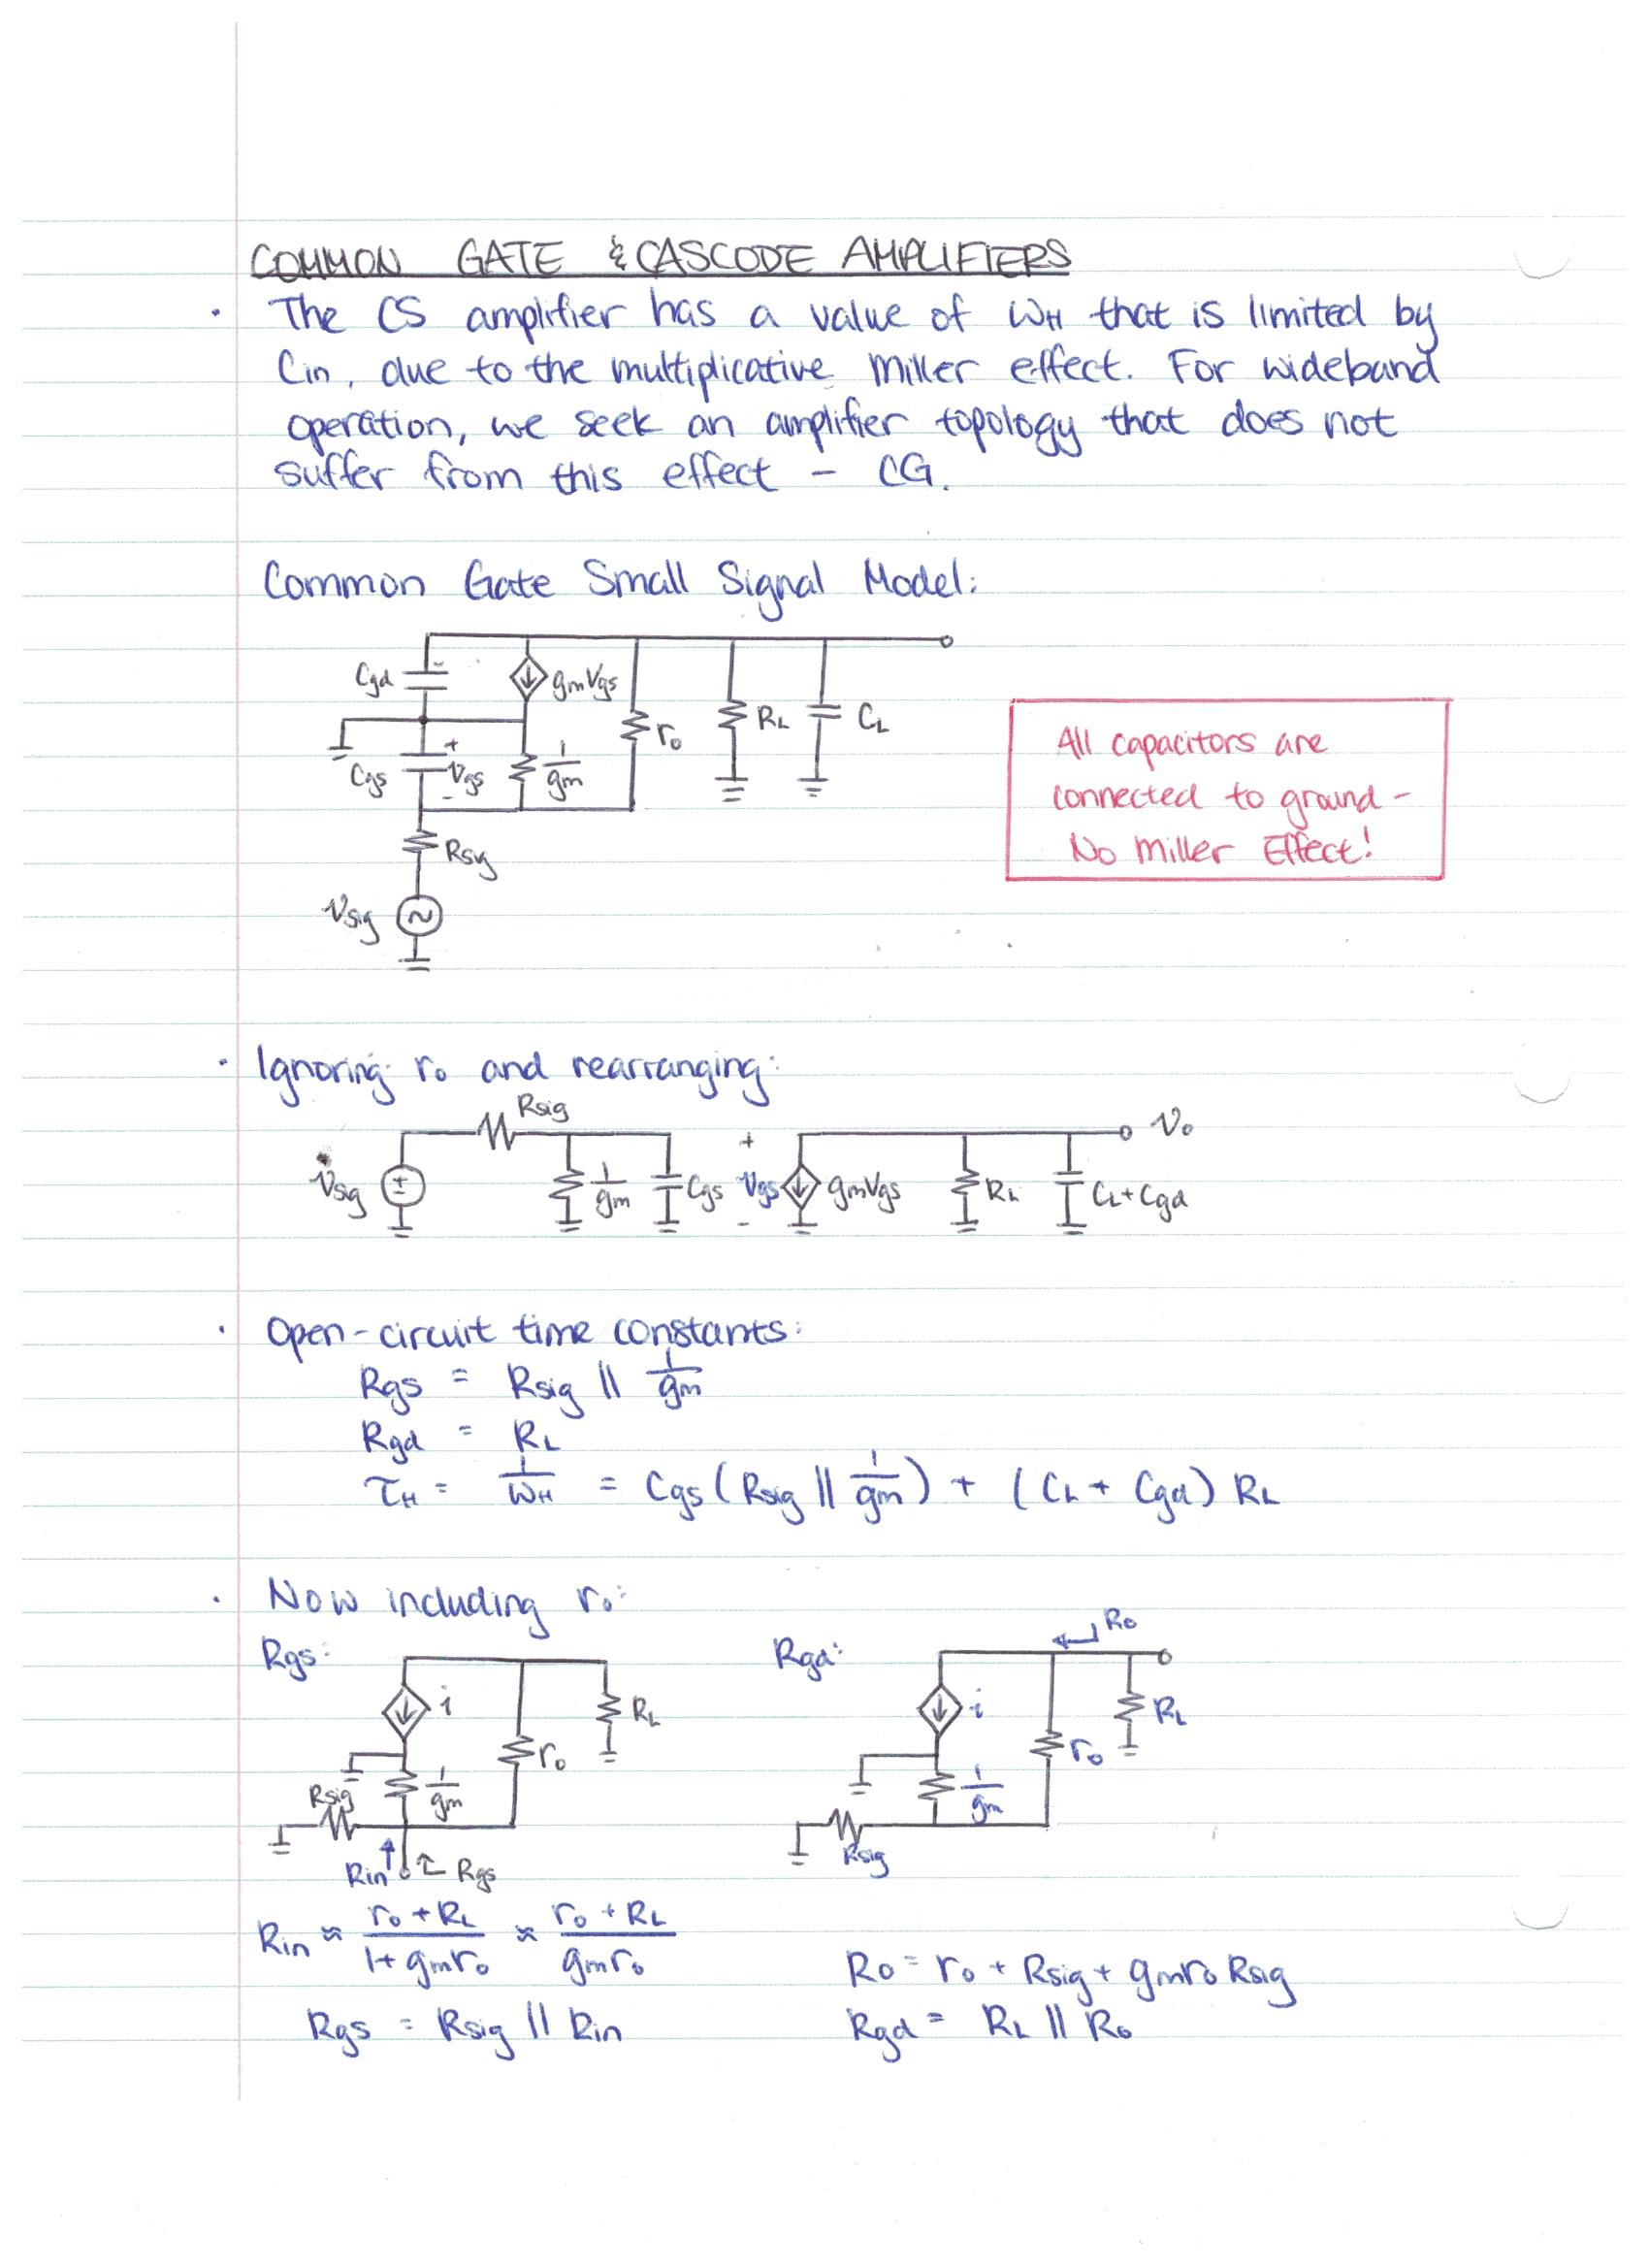 COMMON GATE & CASCODE AMPLIFIERS
· The CS amplifier has a value of ωH that is limited by
Cin, due to the multiplicative Miller effect. For wideband
operation, we seek an amplifier topology that does not
suffer from this effect – CG.
Common Gate Small Signal Model:
Cgd
gmVgs
ro
RL
CL
Cgs
+
Vgs
-
1/gm
Rsig
Vsig
All capacitors are
connected to ground –
No Miller Effect!
· Ignoring ro and rearranging:
Rsig
Vsig
1/gm
Cgs
+
Vgs
-
gmVgs
RL
CL+Cgd
Vo
· Open-circuit time constants:
Rgs = Rsig || 1/gm
Rgd = RL
τH = 1/ωH = Cgs(Rsig || 1/gm) + (CL + Cgd) RL
· Now including ro:
Rgs:
i
RL
ro
Rsig
1/gm
Rin
Rgs
Rgd:
Ro
i
RL
ro
1/gm
Rsig
Rin ≈ (ro + RL)/(1 + gmro) ≈ (ro + RL)/(gmro)
Rgs = Rsig || Rin
Ro = ro + Rsig + gmroRsig
Rgd = RL || Ro